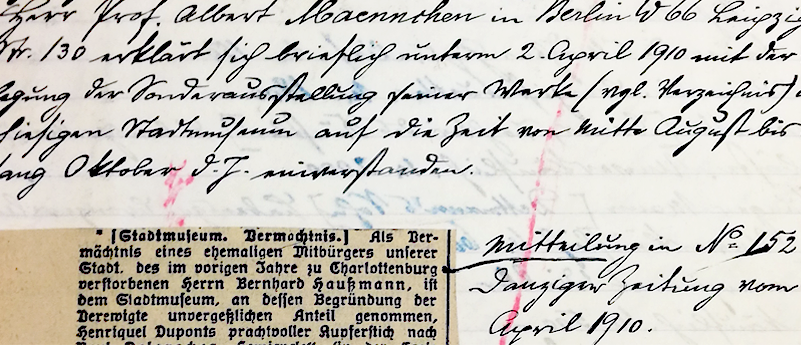 Herr Prof. Albert Maennchen in Berlin W 66 Leipzig
Str. 130 erklärt sich brieflich unterm 2. April 1910 mit der
legung der Sonderausstellung seiner Werke (vgl. Verzeichnis)
hiesigen Stadtmuseum auf die Zeit von Mitte August bis
fang Oktober d. J. einverstanden.
* [Stadtmuseum. Vermächtnis.] Als Ver-
mächtnis eines ehemaligen Mitbürgers unserer
Stadt, des im vorigen Jahre zu Charlottenburg
verstorbenen Herrn Bernhard Haußmann, ist
dem Stadtmuseum, an dessen Begründung der
Verewigte unvergeßlichen Anteil genommen,
Henriquel Duponts prachtvoller Kupferstich nach
Mitteilung in No 152
Danziger Zeitung vom
April 1910.